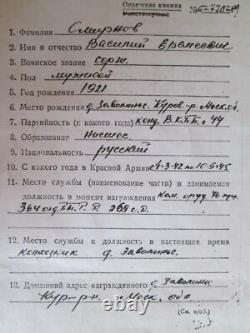 Орденская книжка
1. Фамилия Смирнов
2. Имя и отчество Василий
3. Воинское звание серж.
4. Пол мужской
5. Год рождения 1921
6. Место рождения д. Куров. р. Моск. об.
7. Партийность (с какого года) канд. В.К.П.Б. с 44
8. Образование низшее
9. Национальность русский
10. С какого года в Красной Армии 4-3-42 по 10-5-45
11. Место службы (наименование части) и занимаемая
должность в момент награждения Ком. оруд. 76 пуш.
364 отд. 269 с.д.
12. Место службы и должность в настоящее время
д.
13. Домашний адрес награжденного
Кур-р-н, Моск. обл.